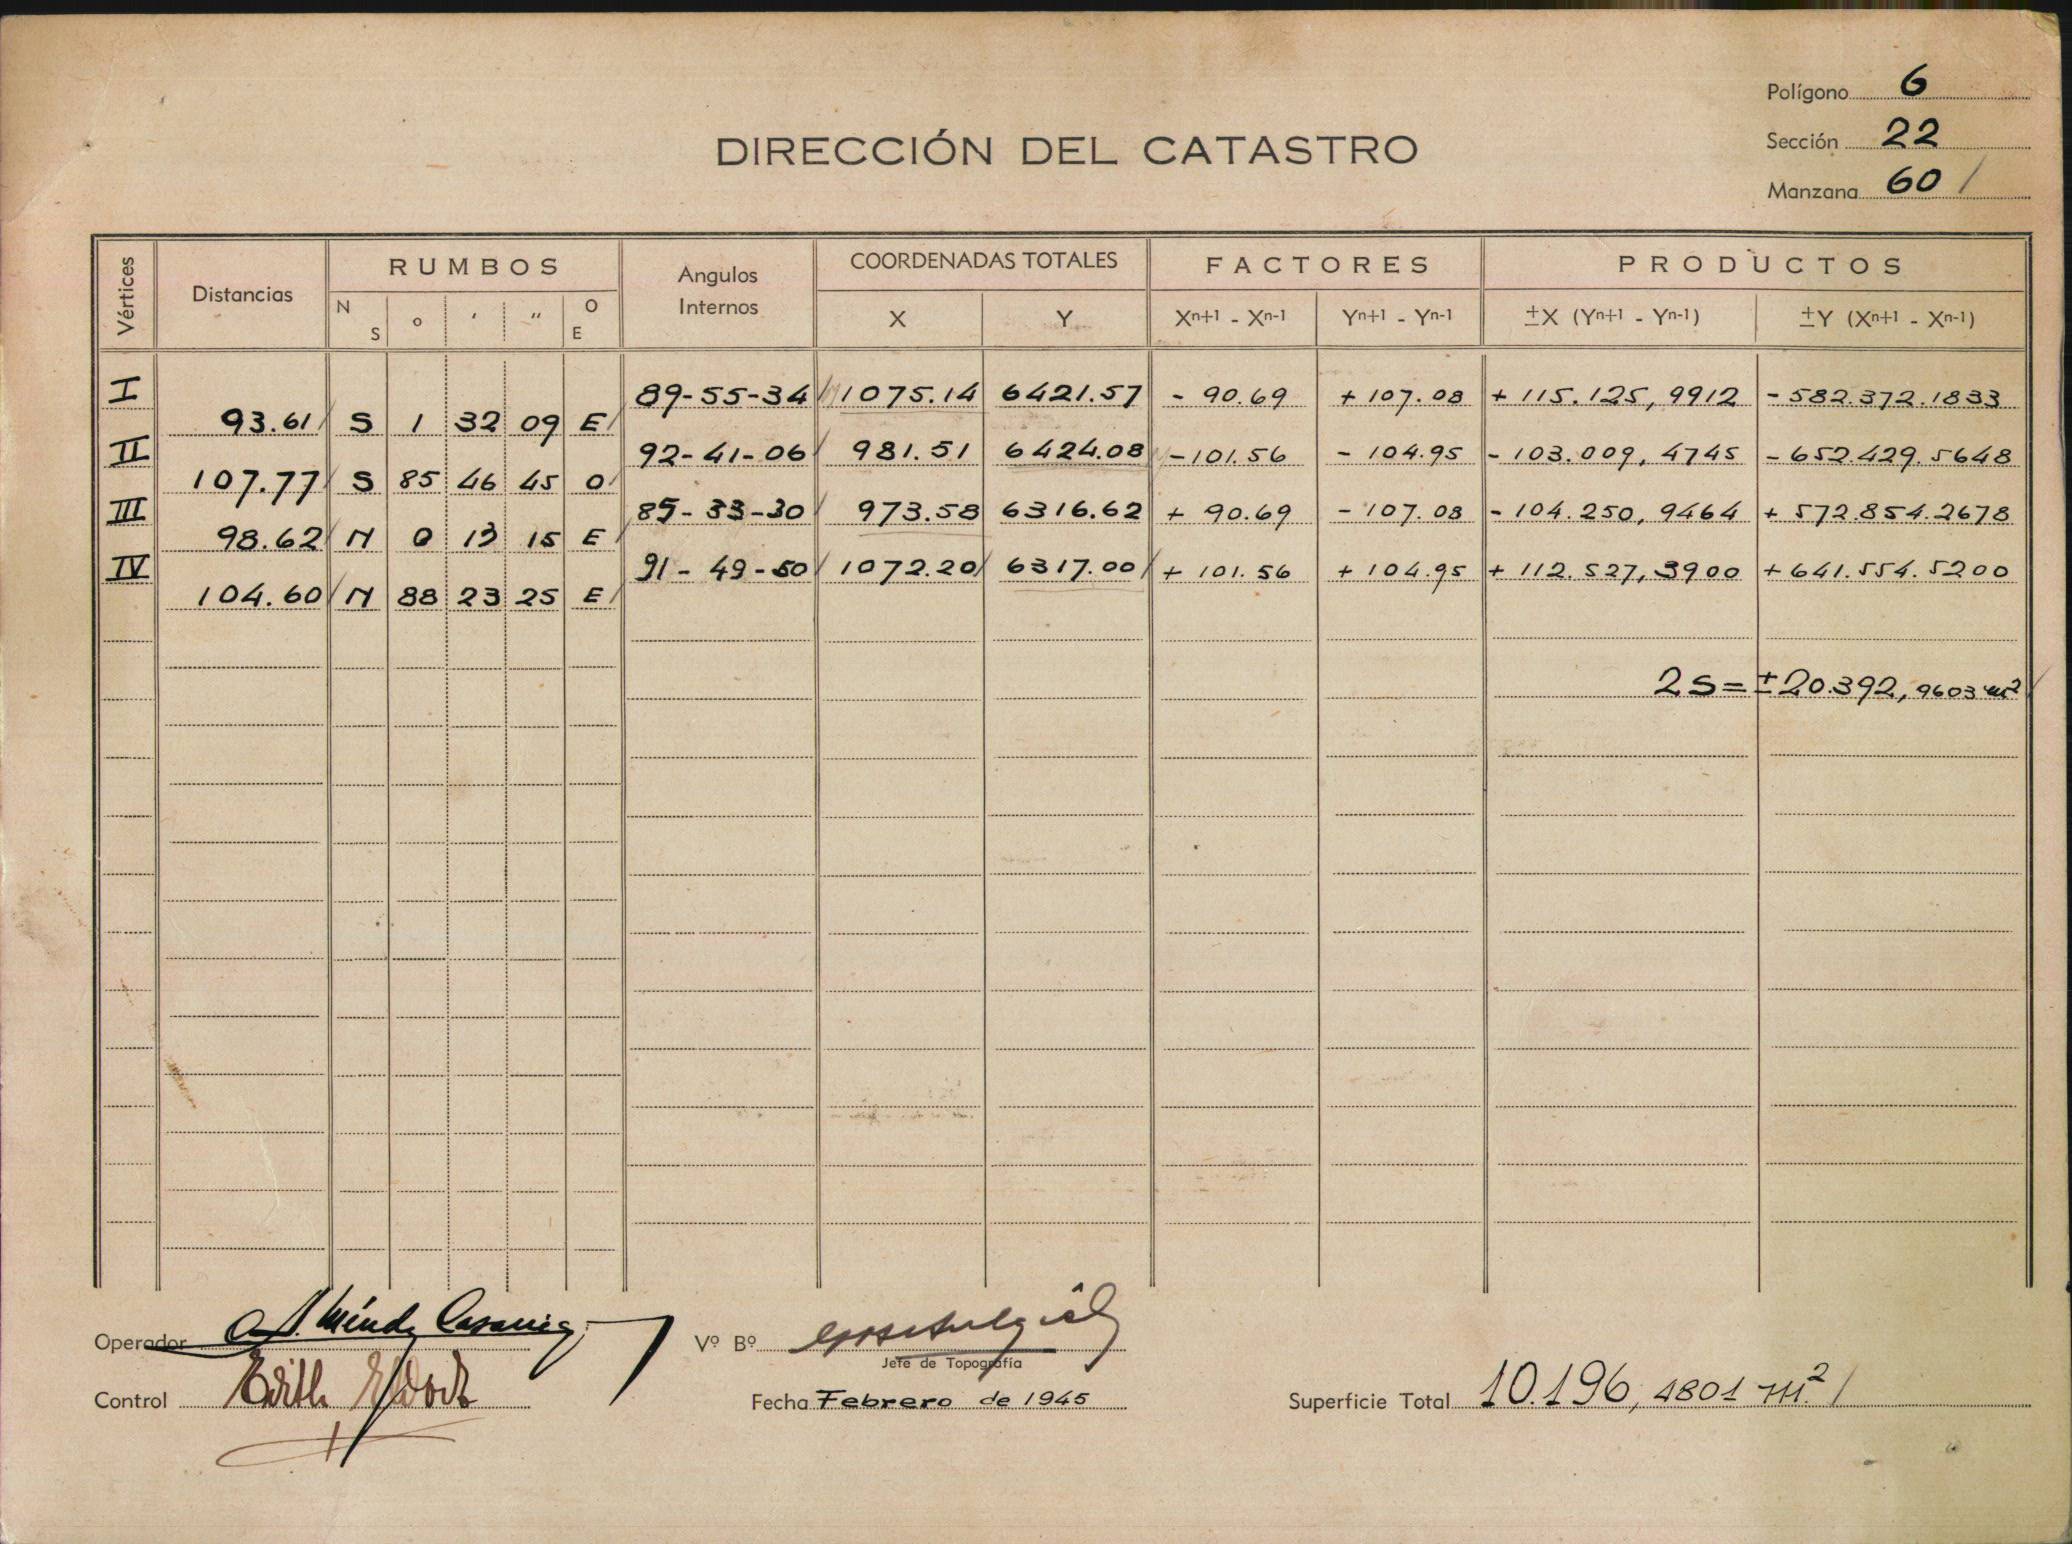 Polígono 6
DIRECCIÓN DEL CATASTRO
Sección 22
Manzana 60 /
Vértices
Distancias
RUMBOS
N S ° ′ ″ O E
Angulos Internos
COORDENADAS TOTALES
X Y
FACTORES
Xⁿ⁺¹ - Xⁿ⁻¹ Yⁿ⁺¹ - Yⁿ⁻¹
PRODUCTOS
±X (Yⁿ⁺¹ - Yⁿ⁻¹) ±Y (Xⁿ⁺¹ - Xⁿ⁻¹)
I 89-55-34 1075.14 6421.57 - 90.69 + 107.08 + 115.125,9912 - 582.372.1833
93.61 S 1 32 09 E
II 92-41-06 981.51 6424.08 -101.56 - 104.95 - 103.009,4745 - 652.429.5648
107.77 S 85 46 45 O
III 85-33-30 973.58 6316.62 + 90.69 - 107.08 - 104.250,9464 + 572.854.2678
98.62 N 0 13 15 E
IV 91-49-50 1072.20 6317.00 + 101.56 + 104.95 + 112.527,3900 + 641.554.5200
104.60 N 88 23 25 E
2S = ± 20.392,9603 m²
Operador
Vº Bº
Jefe de Topografía
Control Edith
Fecha Febrero de 1945
Superficie Total 10.196,4801 m² /